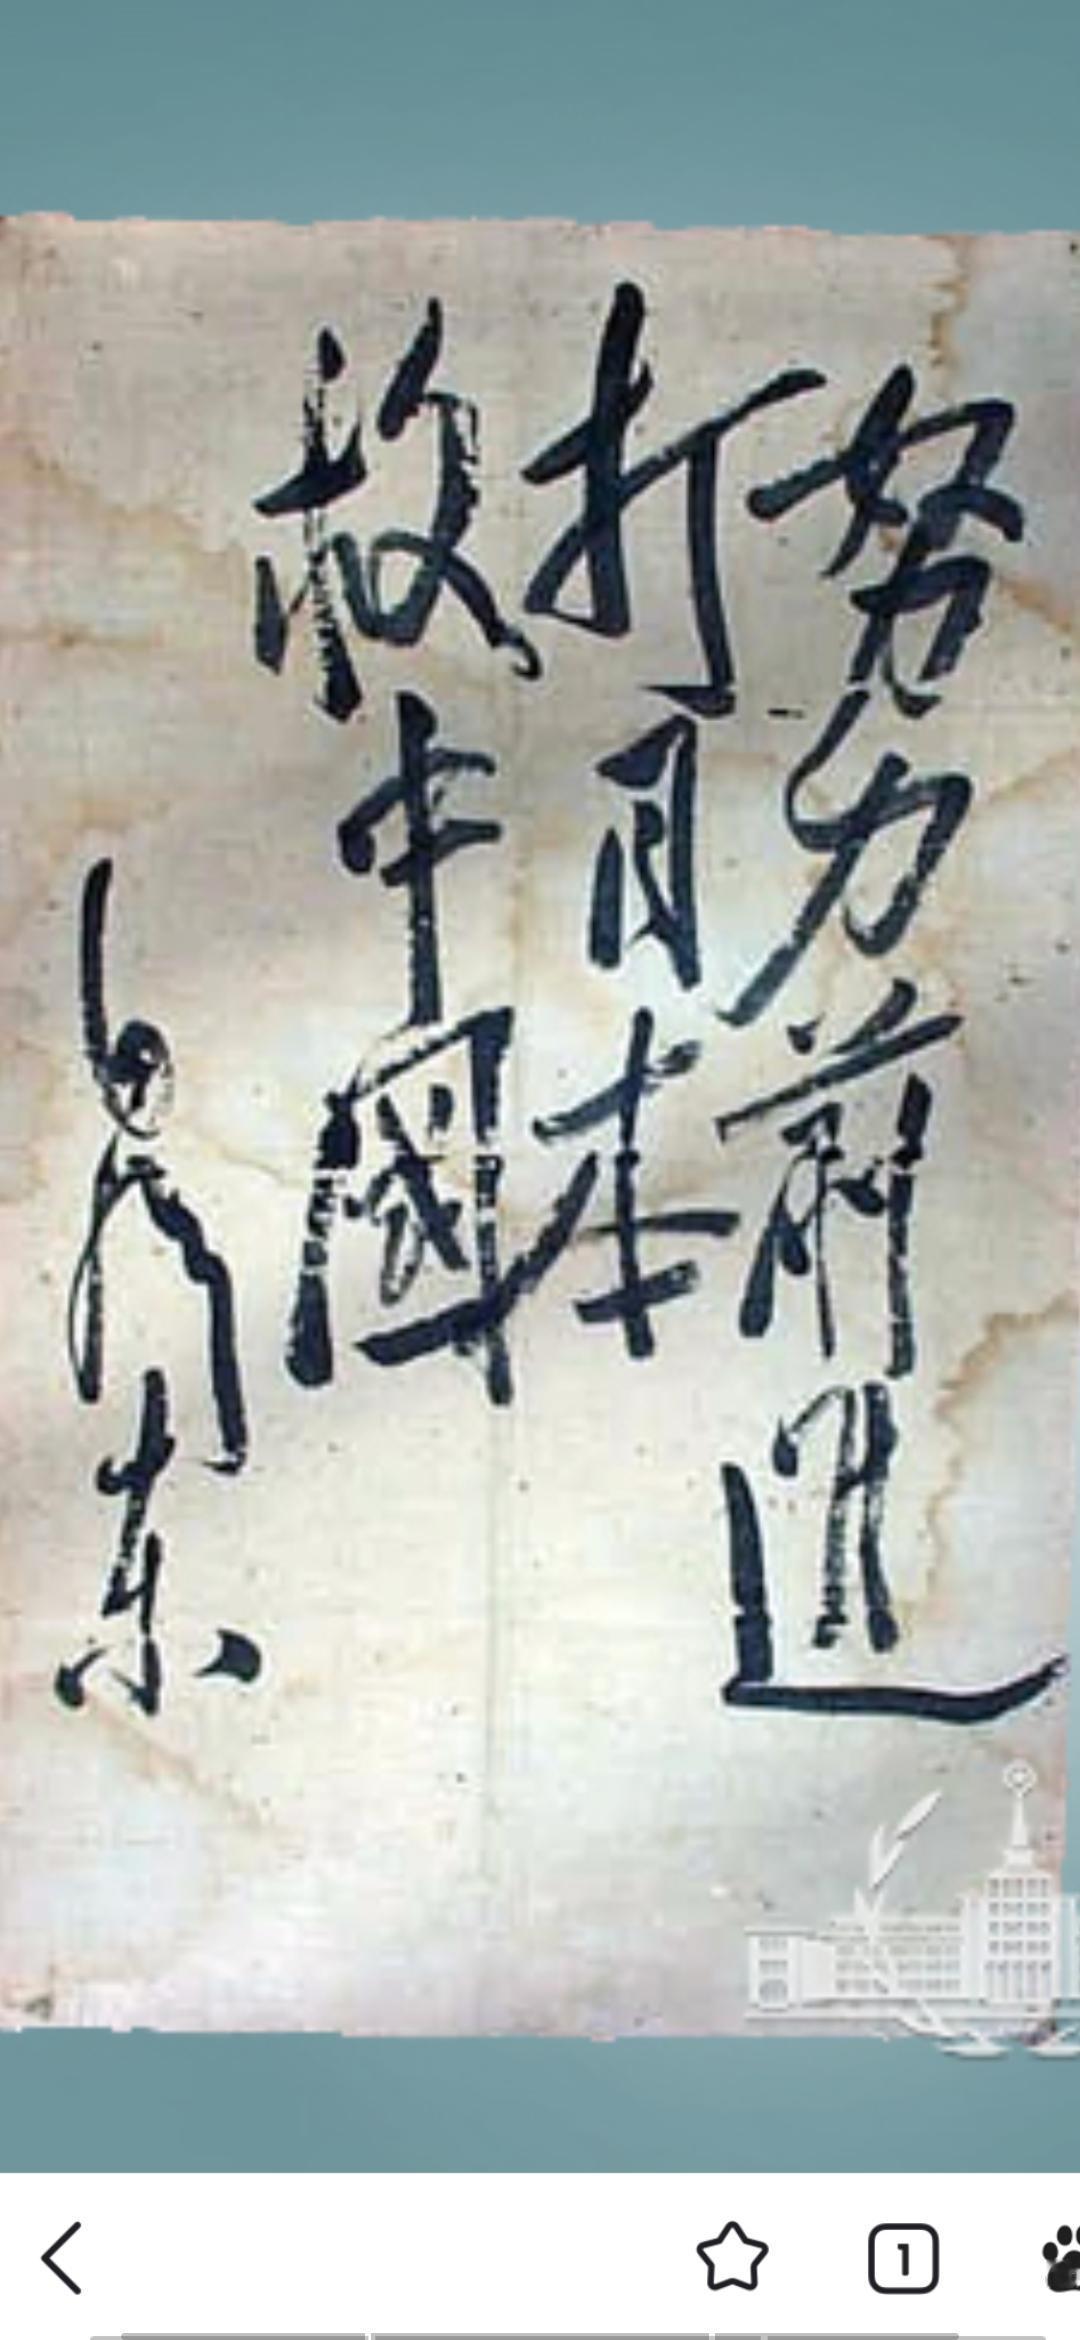 努力前進
打日本
救中國
毛澤东
1